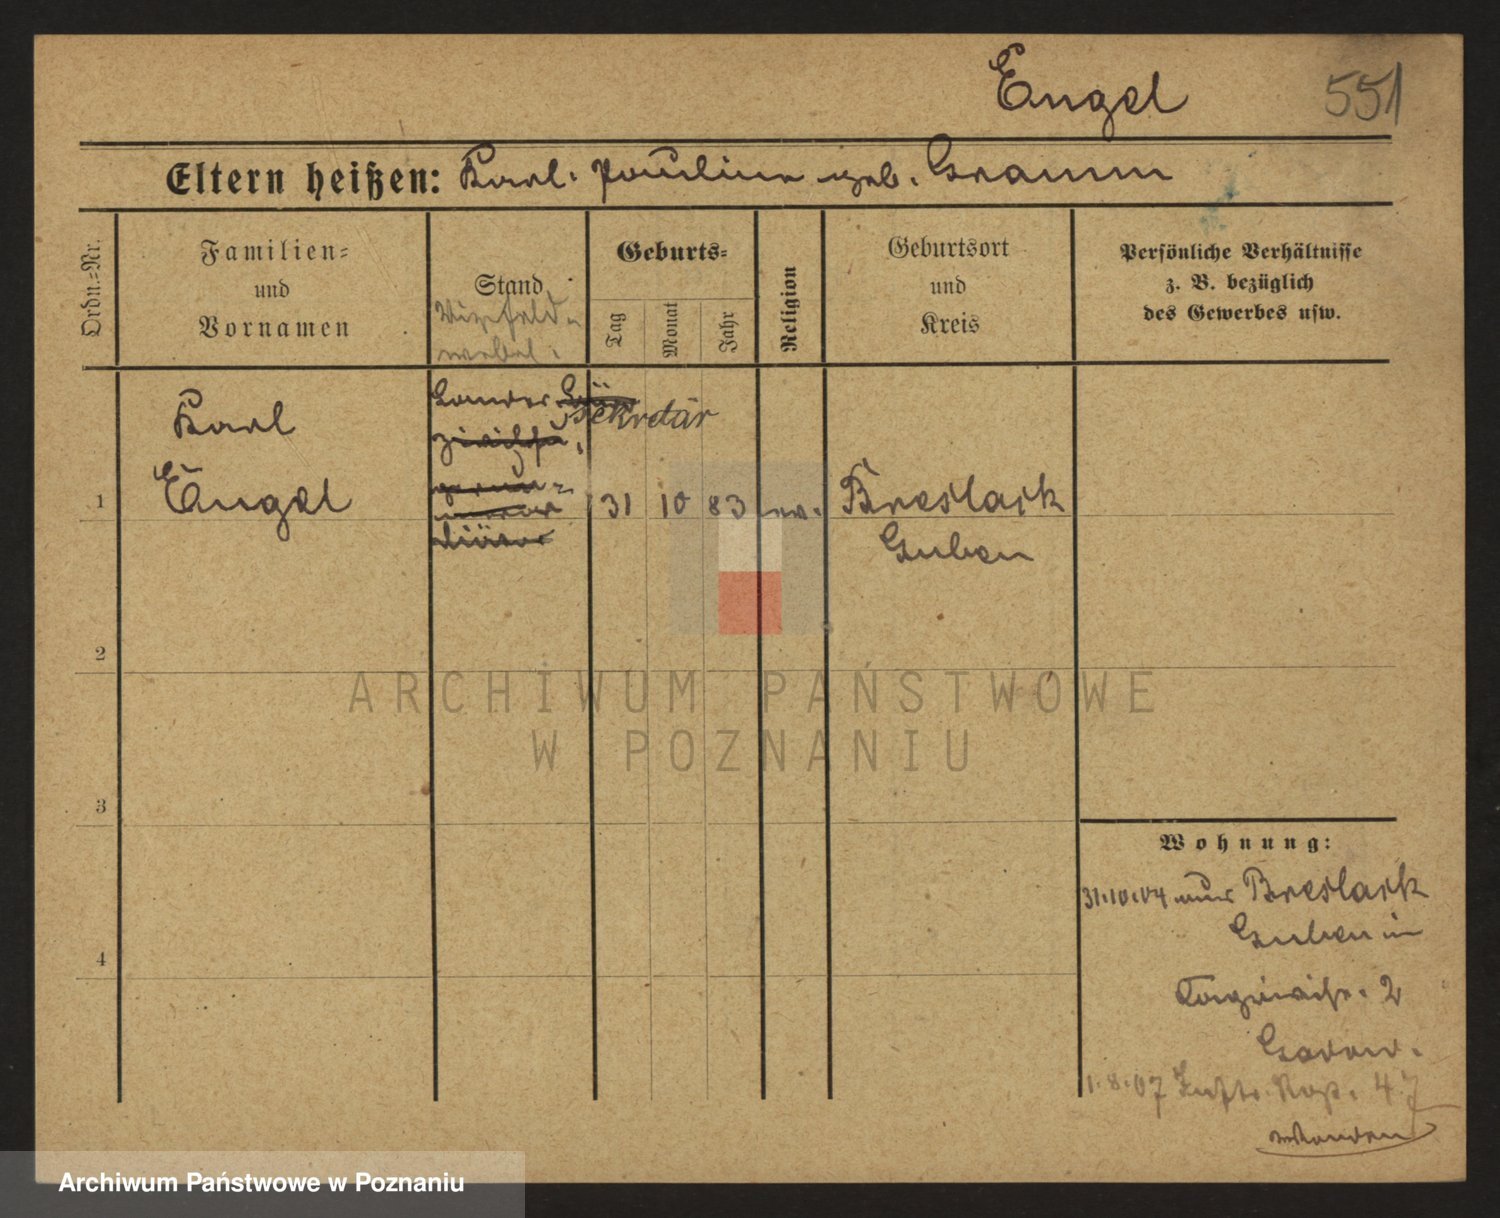 Engel 551
Eltern heißen: Karl. Pauline geb. Gramm
Ordn.=Nr.
Familien=
und
Vornamen
Stand
Vizefeld=
webel.
Geburts=
Tag
Monat
Jahr
Religion
Geburtsort
und
Kreis
Persönliche Verhältnisse
z. B. bezüglich
des Gewerbes usw.
Karl
Sekretär
1 Engel 31 10 83 ev. Breslack
Guben
2
ARCHIWUM PAŃSTWOWE
W POZNANIU
3
Wohnung:
31.10.04 Breslack
Guben in
2
4
1.8.07 47
Archiwum Państwowe w Poznaniu